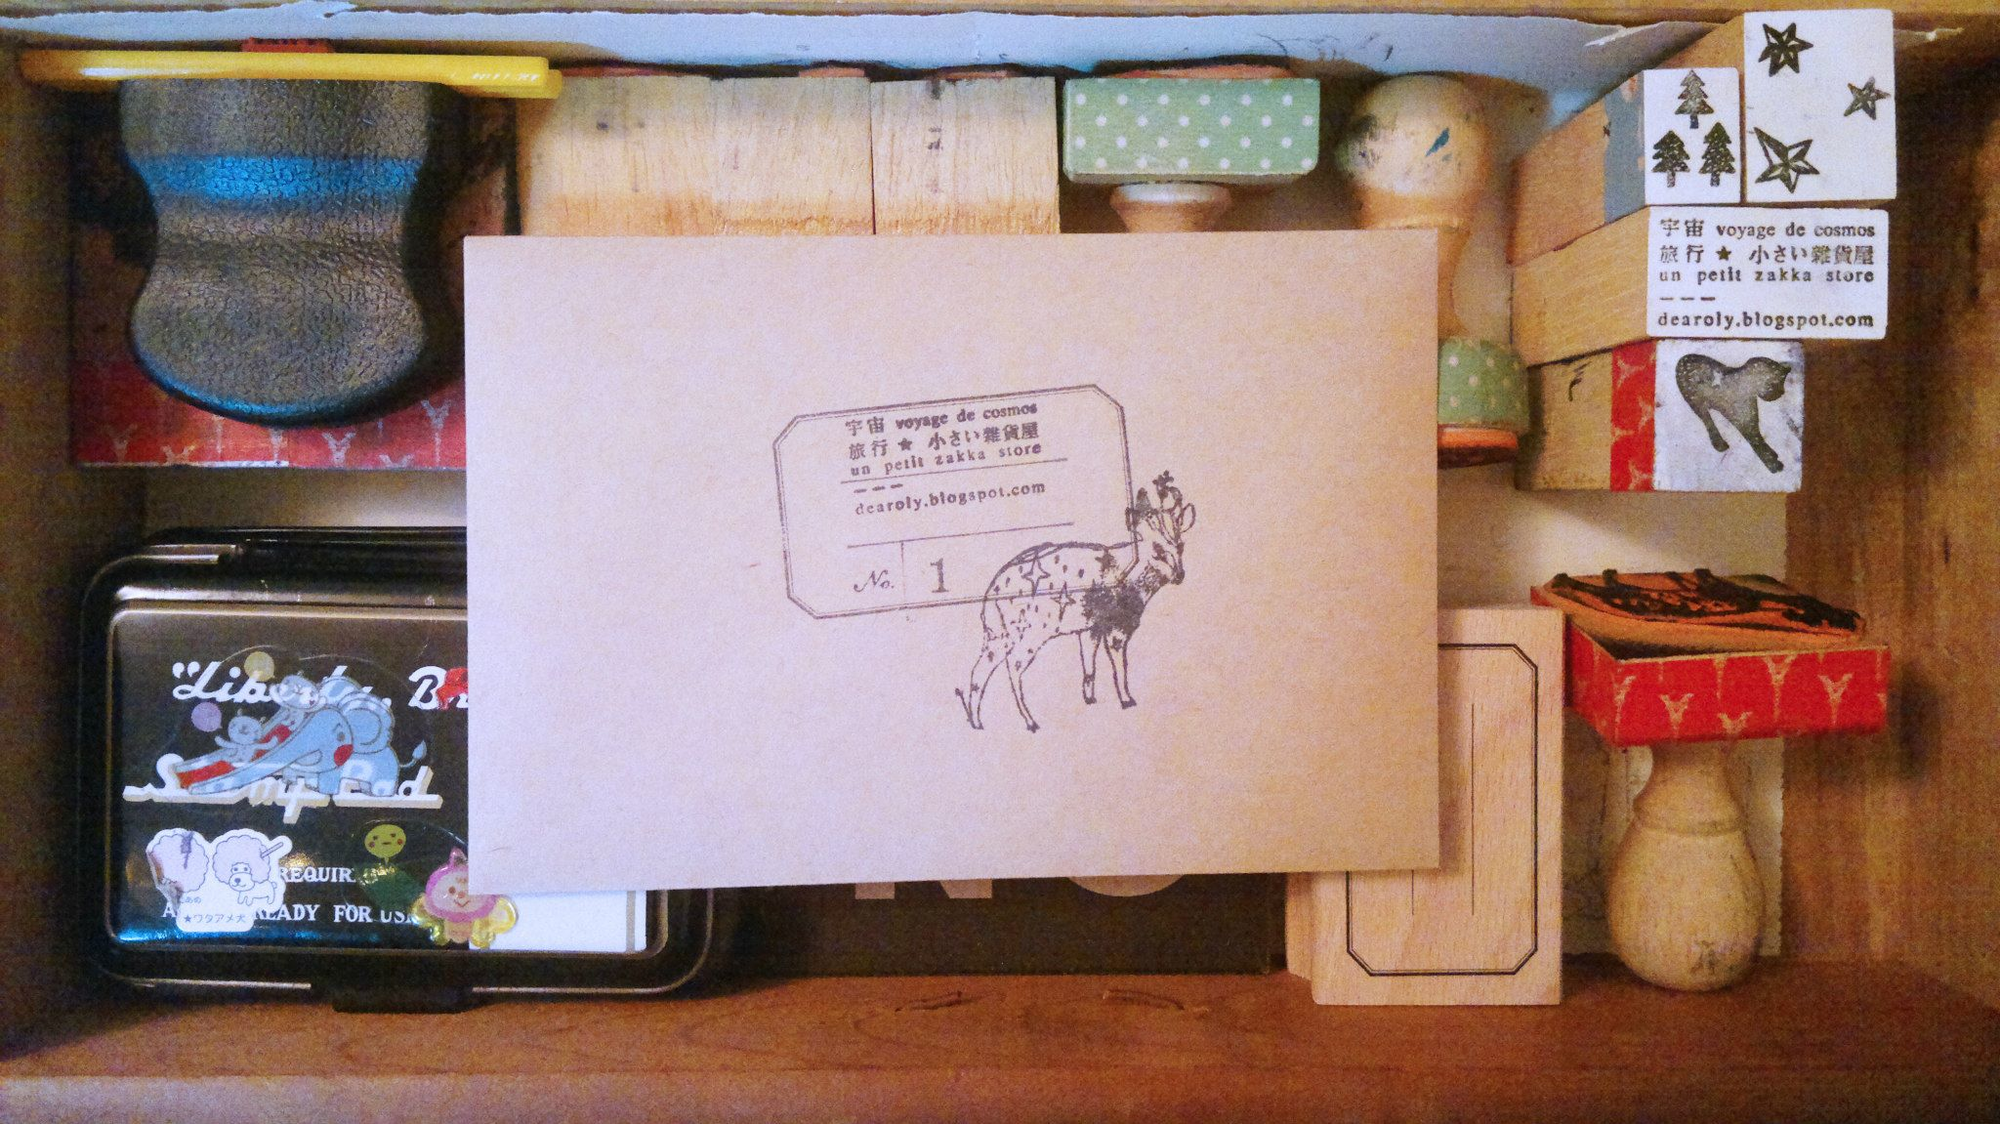 宇宙 voyage de cosmos
旅行 ★ 小さい雑貨屋
un petit zakka store
---
dearoly.blogspot.com
宇宙 voyage de cosmos
旅行 ★ 小さい雑貨屋
un petit zakka store
---
dearoly.blogspot.com
No. 1
Pad
READY FOR
★ワタアメ犬
NO